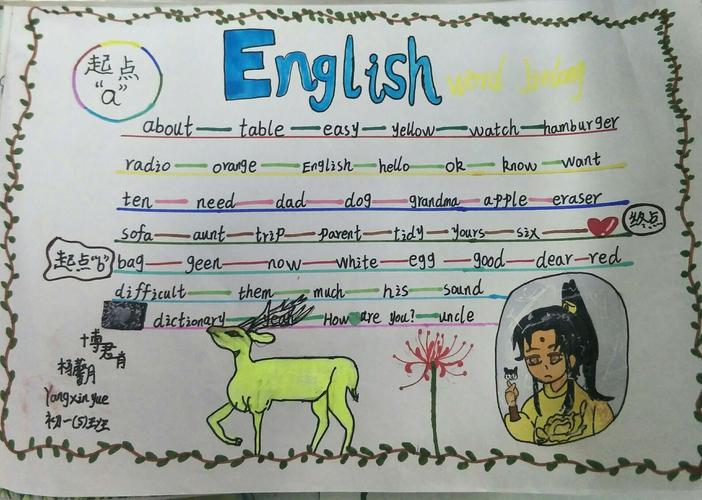 English
起点
"a"
about table easy yellow watch hamburger
radio orange English hello ok know want
ten need dad dog grandma apple eraser
sofa aunt trip parent tidy yours six
终点
起点"b" bag geen now white egg good dear red
difficult them much his sound
dictionary How are you? uncle
博君一肖
Yangxinyue
初一(5)班